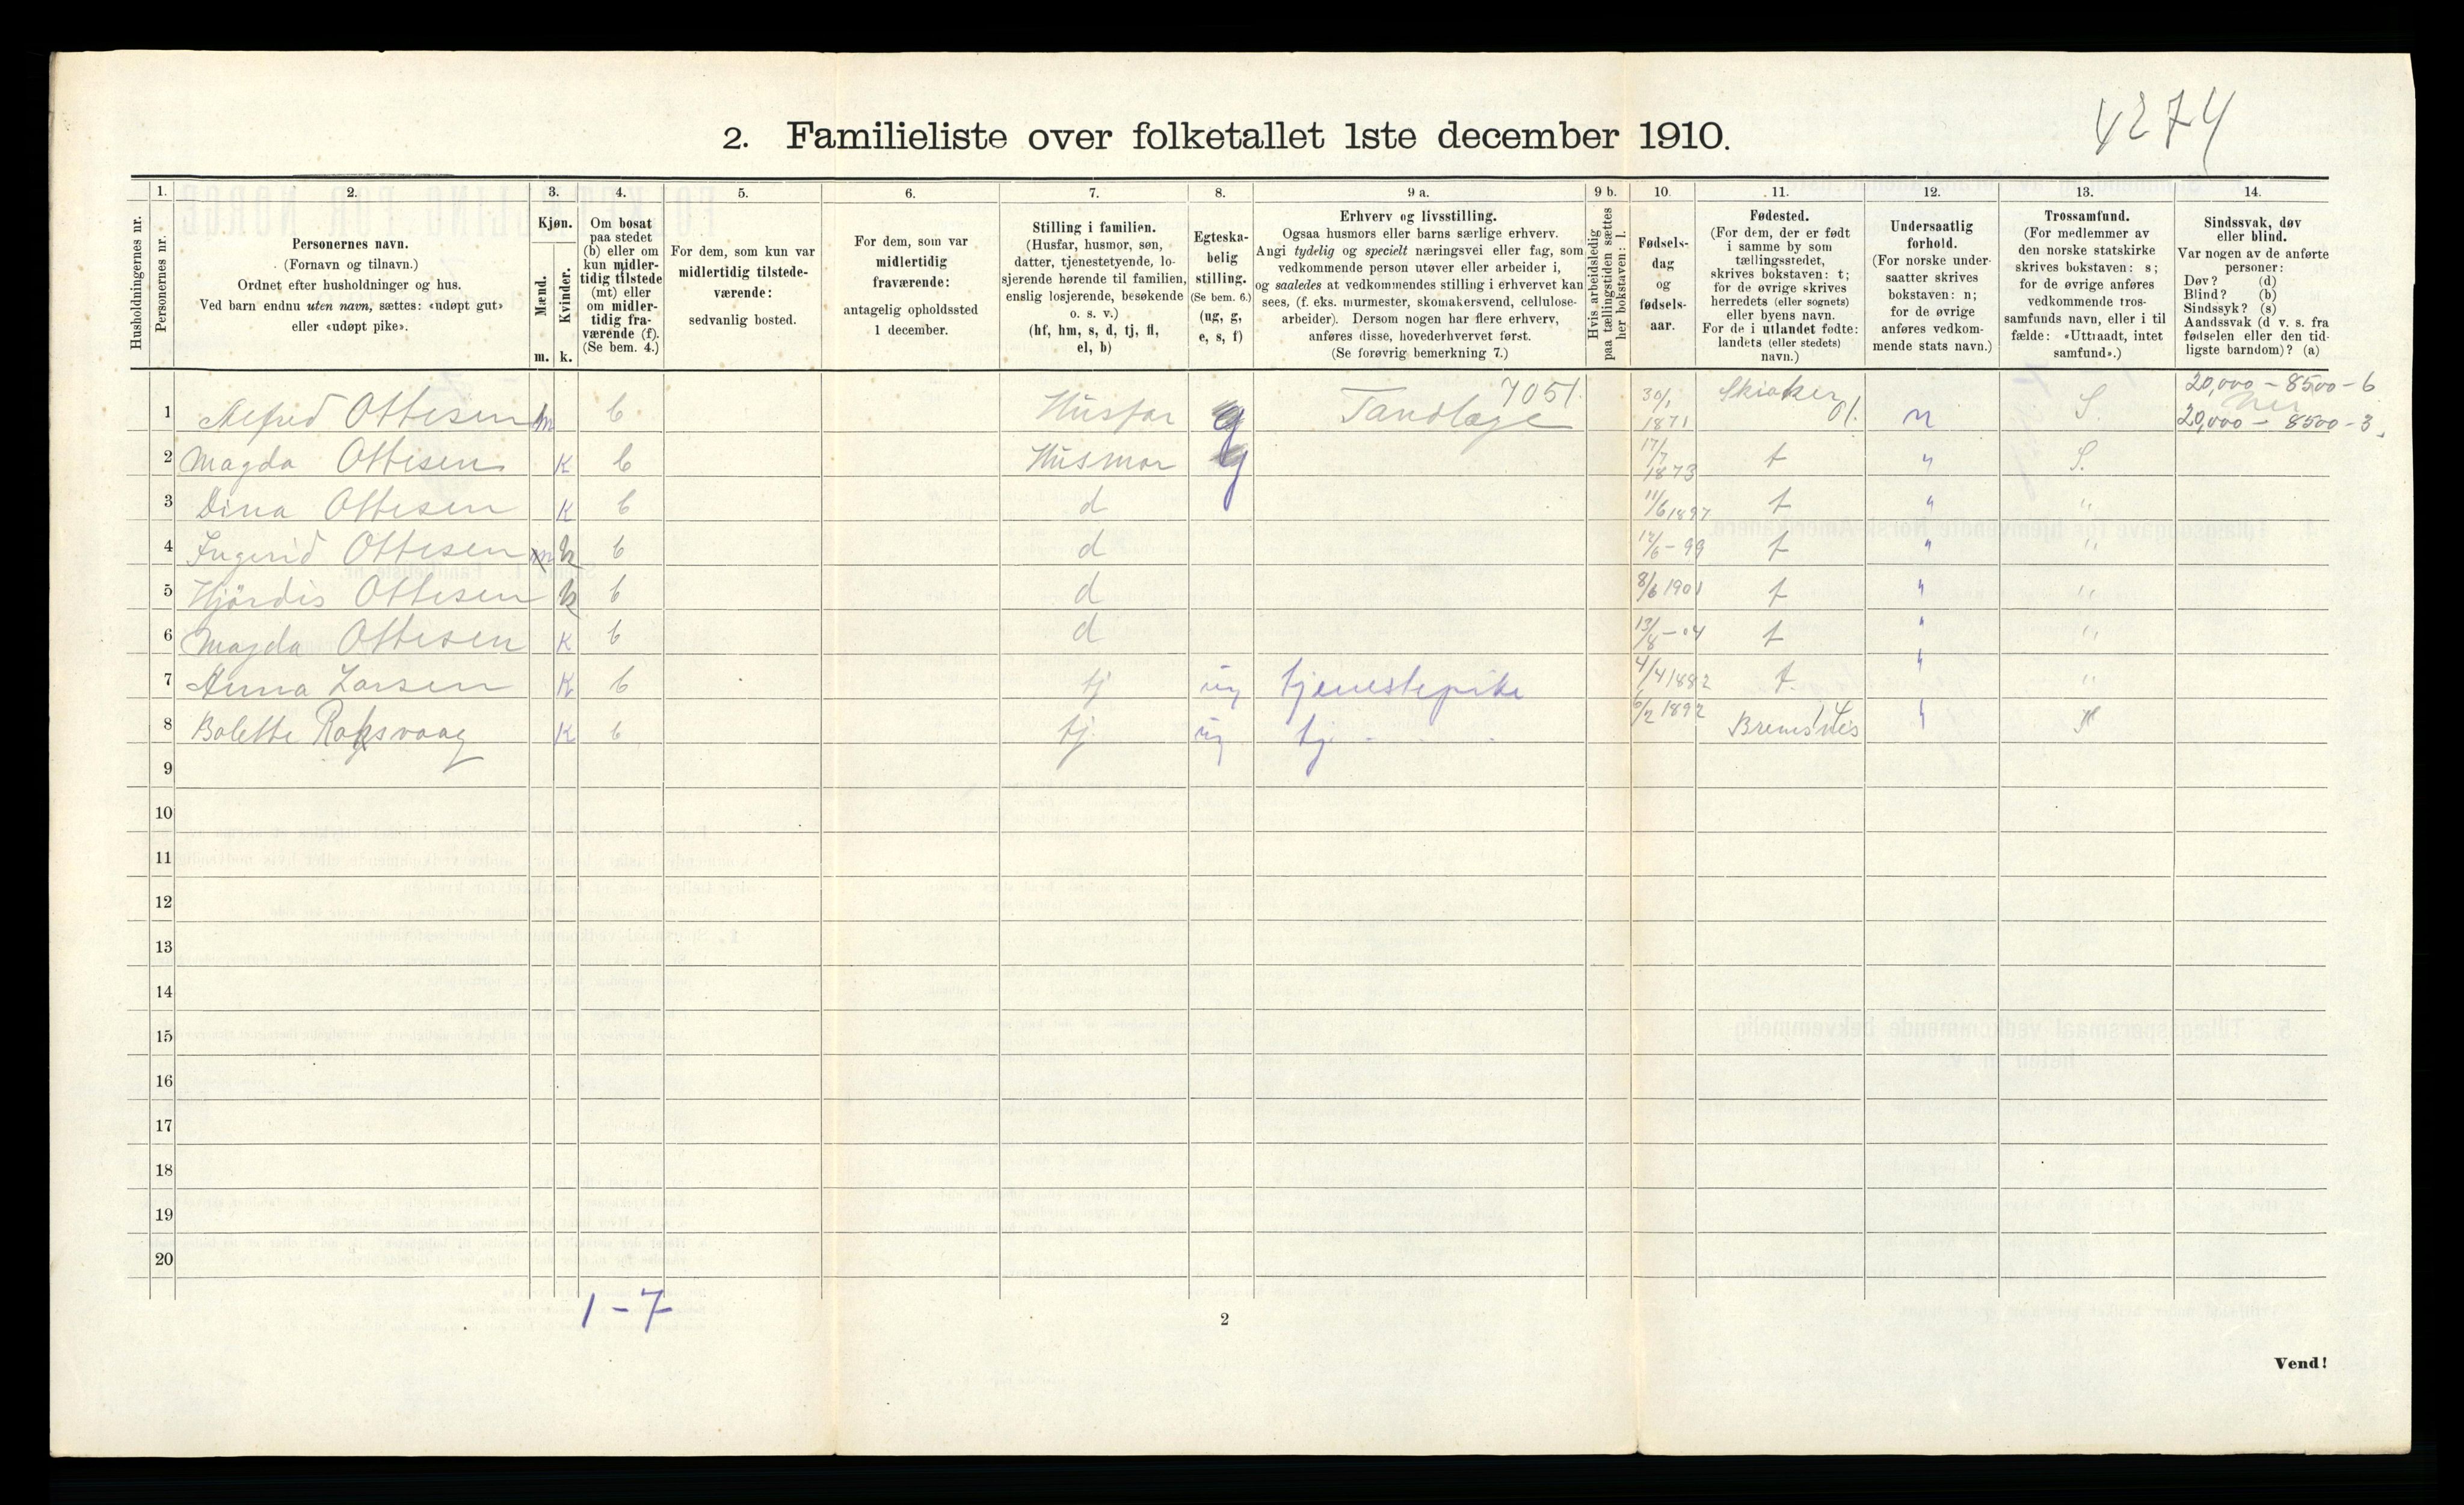 4274
2. Familieliste over folketallet 1ste december 1910.
1. 2. 3. 4. 5. 6. 7. 8. 9 a. 9 b. 10. 11. 12. 13. 14.
Husholdningernes nr.
Personernes nr.
Personernes navn.
(Fornavn og tilnavn.)
Ordnet efter husholdninger og hus.
Ved barn endnu uten navn, sættes: «udøpt gut»
eller «udøpt pike».
Kjøn.
Mænd.
Kvinder.
m. k.
Om bosat
paa stedet
(b) eller om
kun midler-
tidig tilstede
(mt) eller
om midler-
tidig fra-
værende (f).
(Se bem. 4.)
For dem, som kun var
midlertidig tilstede-
værende:
sedvanlig bosted.
For dem, som var
midlertidig
fraværende:
antagelig opholdssted
1 december.
Stilling i familien.
(Husfar, husmor, søn,
datter, tjenestetyende, lo-
sjerende hørende til familien,
enslig losjerende, besøkende
o. s. v.)
(hf, hm, s, d, tj, fl,
el, b)
Egteska-
belig
stilling.
(Se bem. 6.)
(ug, g,
e, s, f)
Erhverv og livsstilling.
Ogsaa husmors eller barns særlige erhverv.
Angi tydelig og specielt næringsvei eller fag, som
vedkommende person utøver eller arbeider i,
og saaledes at vedkommendes stilling i erhvervet kan
sees, (f. eks. murmester, skomakersvend, cellulose-
arbeider). Dersom nogen har flere erhverv,
anføres disse, hovederhvervet først.
(Se forøvrig bemerkning 7.)
Hvis arbeidsledig
paa tællingstiden sættes
her bokstaven: l.
Fødsels-
dag
og
fødsels-
aar.
Fødested.
(For dem, der er født
i samme by som
tællingsstedet,
skrives bokstaven: t;
for de øvrige skrives
herredets (eller sognets)
eller byens navn.
For de i utlandet fødte:
landets (eller stedets)
navn.)
Undersaatlig
forhold.
(For norske under-
saatter skrives
bokstaven: n;
for de øvrige
anføres vedkom-
mende stats navn.)
Trossamfund.
(For medlemmer av
den norske statskirke
skrives bokstaven: s;
for de øvrige anføres
vedkommende tros-
samfunds navn, eller i til
fælde: «Uttraadt, intet
samfund».)
Sindssvak, døv
eller blind.
Var nogen av de anførte
personer:
Døv? (d)
Blind? (b)
Sindssyk? (s)
Aandssvak (d v. s. fra
fødselen eller den tid-
ligste barndom)? (a)
20,000 - 8500 - 6
1 Alfred Ottesen m b Husfar g Tandlæge 7051. 30/1 1871 Skiaker 01. n S. 20,000 - 8500 - 3
2 Magda Ottesen K b Husmor g 17/7 1873 t " S.
3 Dina Ottesen K b d 11/6 1897 t " "
4 Ingerid Ottesen k b d 12/6 - 99 t " "
5 Hjördis Ottesen k b d 8/6 1901 t " "
6 Magda Ottesen K b d 13/8 - 04 t " "
7 Anna Larsen K b tj ug tjenestepike 4/4 1882 t. " "
8 Bolette Roksvaag K b tj. ug tj - 6/2 1892 Bremsnes "
9
10
11
12
13
14
15
16
17
18
19
20
1 - 7
2
Vend!